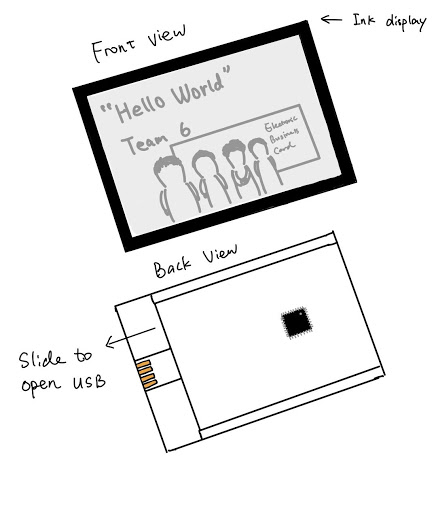 Front view
Ink display
"Hello World"
Team 6
Electronic
Business
Card
Back View
Slide to
open USB